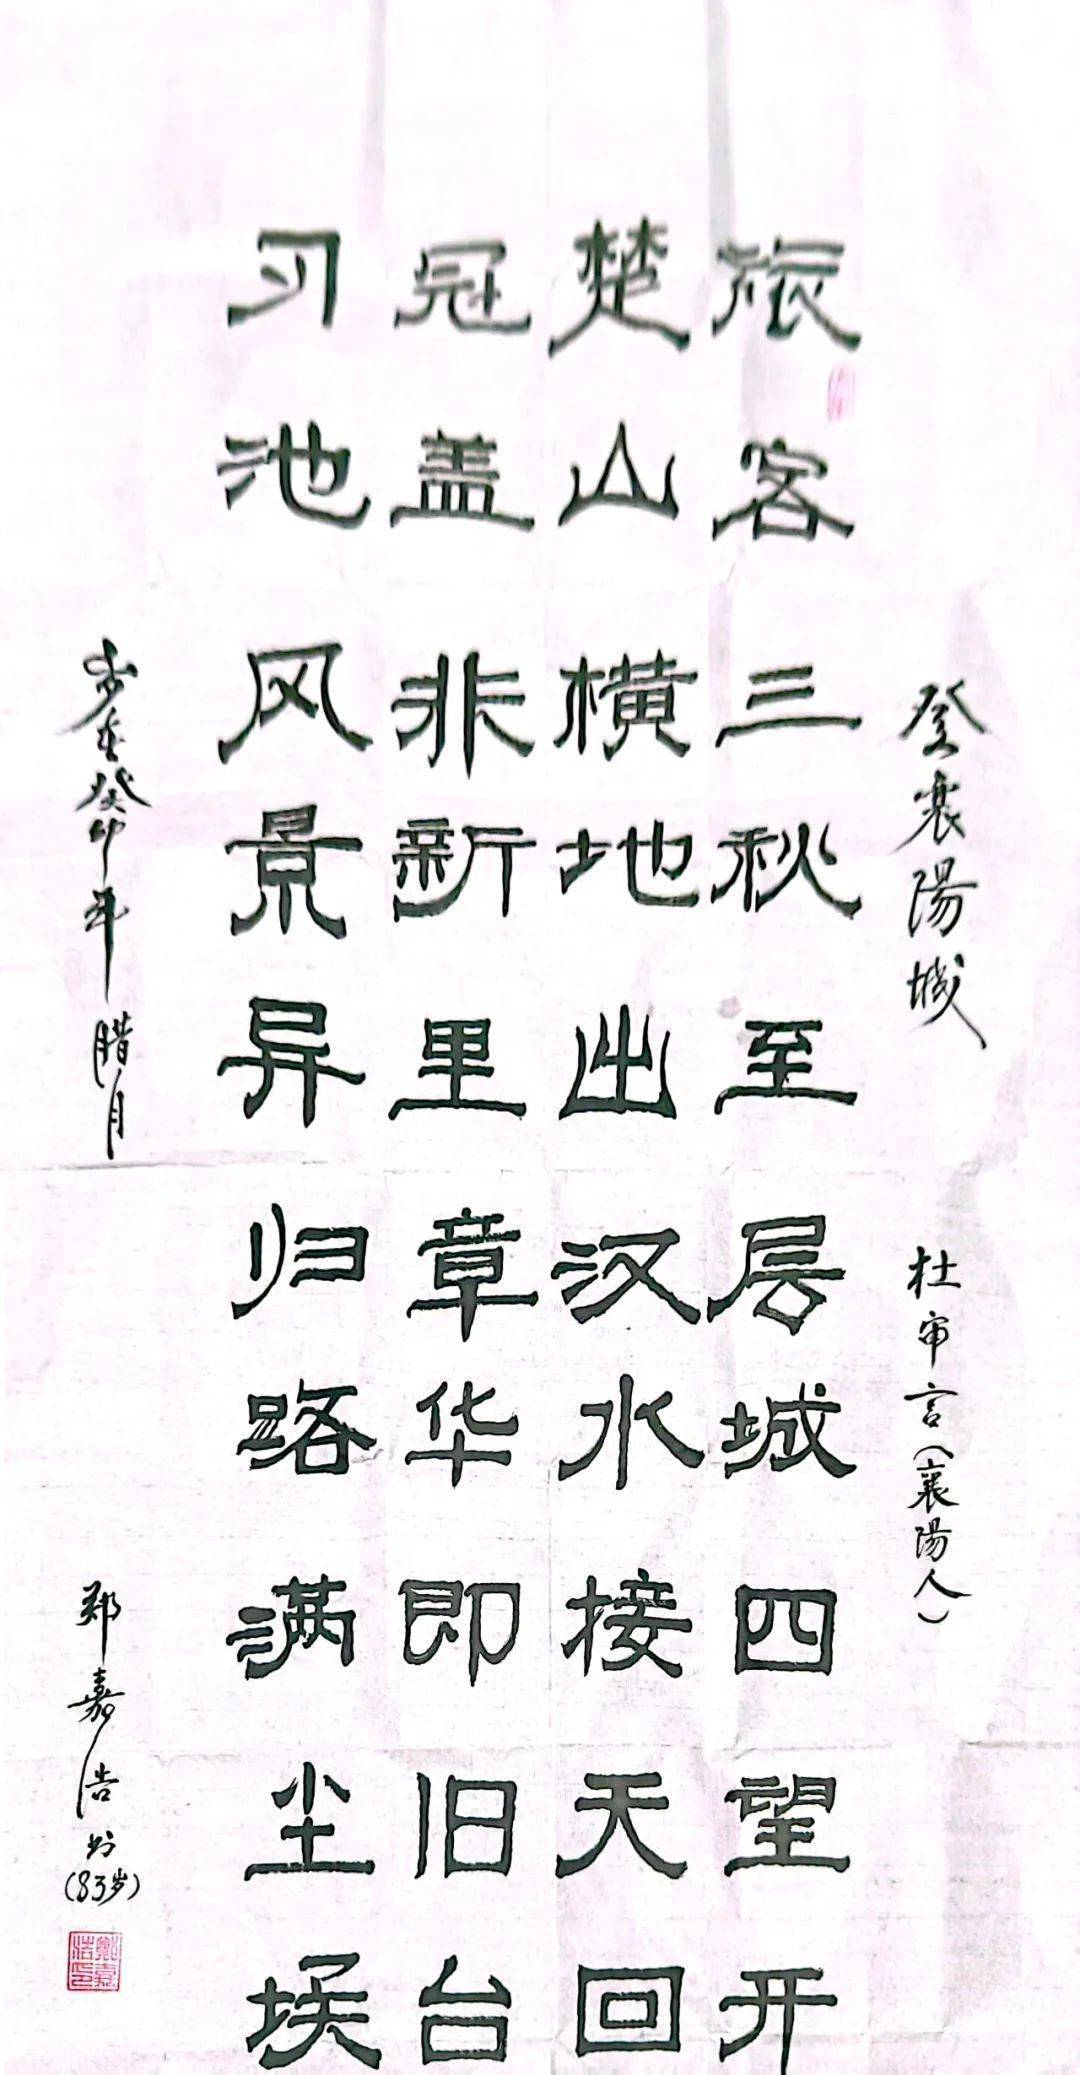 登襄陽城 杜审言(襄陽人)
旅客三秋至层城四望开
楚山横地出汉水接天回
冠盖非新里章华即旧台
习池风景异归路满尘埃
岁在癸卯年腊月 郑嘉浩书(83岁)
鄭嘉浩印